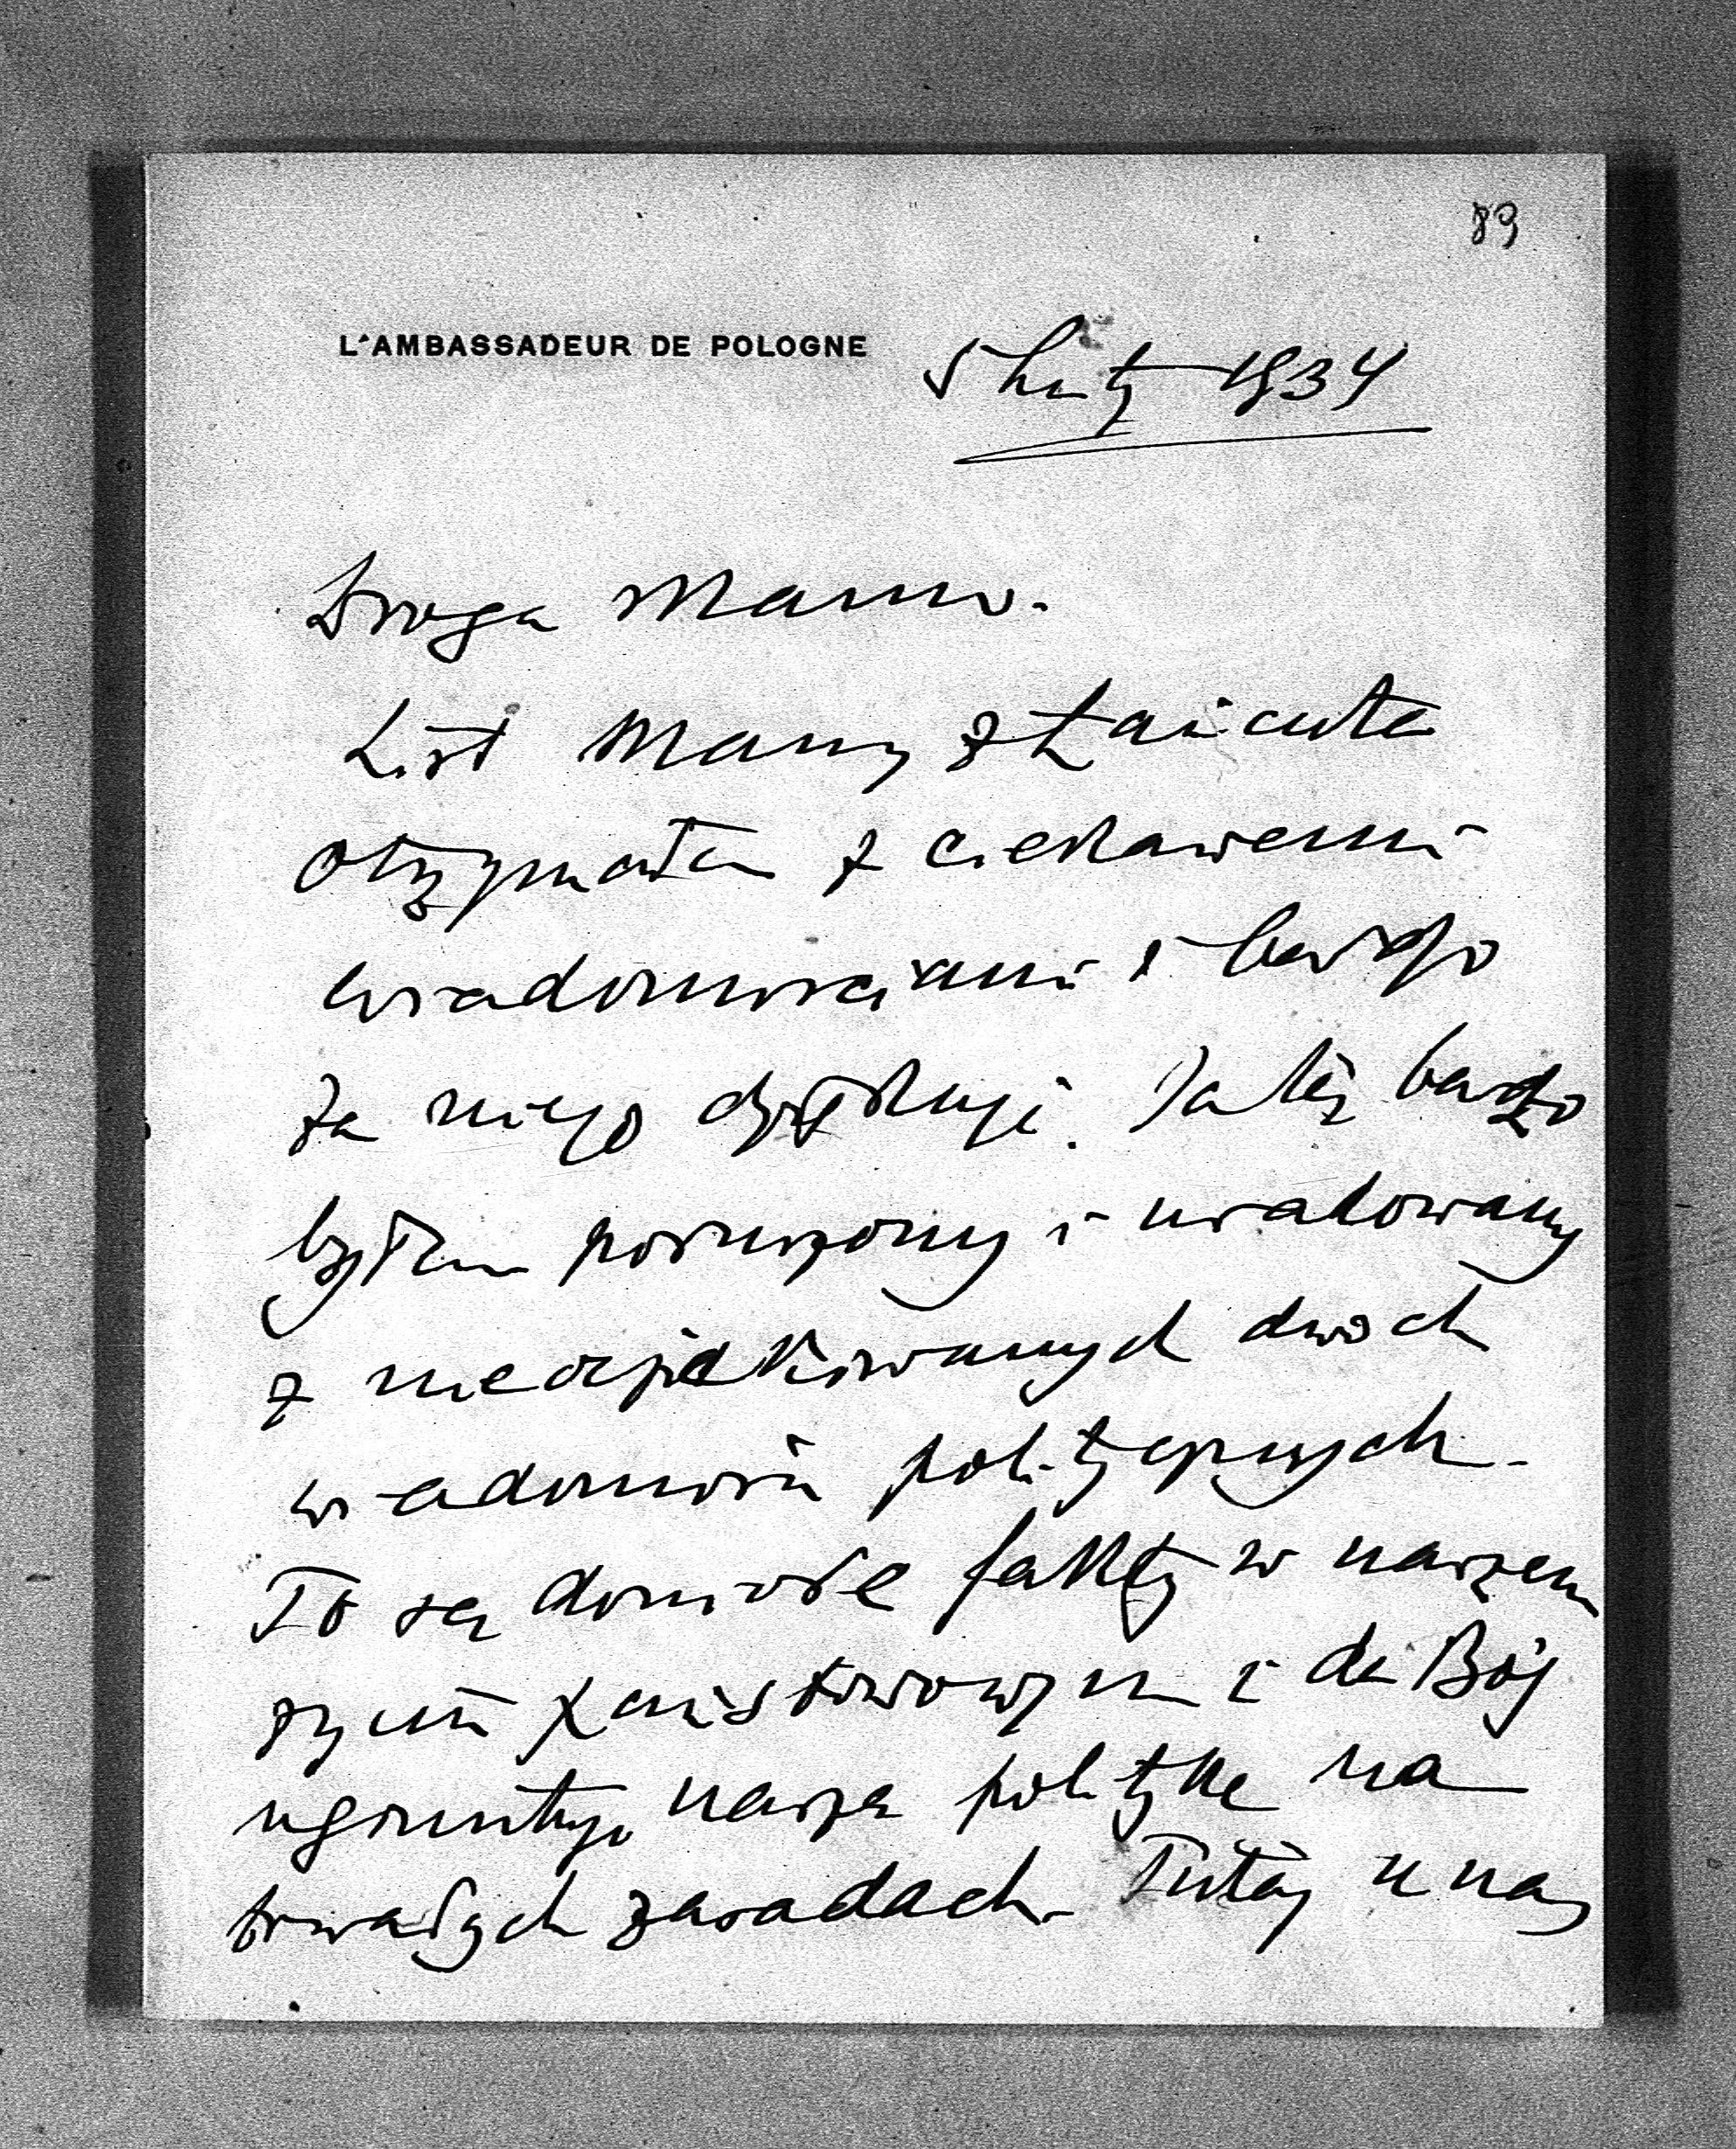 89
L'AMBASSADEUR DE POLOGNE
5 Luty 1934
Droga Mamo.
List Mamy z Łańcuta
otrzymałem z ciekawemi
wiadomościami i bardzo
za niego dziękuję. Ja też bardzo
byłem poruszony i uradowany
z nieoczekiwanych dwóch
wiadomości politycznych.
To są doniosłe fakty w naszem
życiu państwowym i da Bóg
ugruntuje nasza politykę na
trwałych zasadach. Tutaj u nas